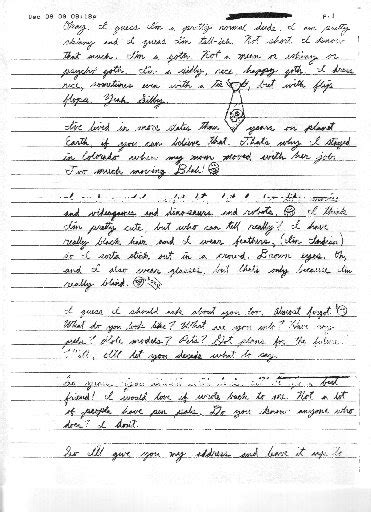 Dec 08 09 09:18a
p.1
Okay. I guess I'm a pretty normal dude. I am pretty
skinny and I guess I'm tall-ish. Not short. I know
that much. I'm a goth. Not a mean or whiny or
psycho goth. I'm a silly, nice, happy goth. I dress
nice, sometimes even with a tie, but with flip
flops. Yeah. Silly.
I've lived in more states than years on planet
Earth, if you can believe that. That's why I stayed
in Colorado when my mom moved with her job.
Too much moving. Blah!
movies
and videogames and dinosaurs and robots. I think
I'm pretty cute but who can tell really? I have
really black hair and I wear feathers, (I'm Indian)
so I sorta stick out in a crowd. Brown eyes. Oh,
and I also wear glasses, but that's only because I'm
really blind.
I guess I should ask about you too. Almost forgot.
What do you look like? What are you into? Have any
pets? Role models? Pets? Got plans for the future?
I'll let you decide what to say.
best
friend! I would love if wrote back to me. Not a lot
of people have pen pals. Do you know anyone who
does? I don't.
So I'll give you my address and leave it up to